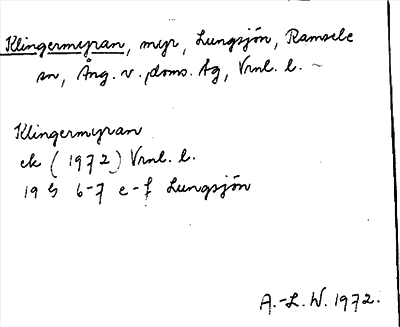 Klingermyran, myr, Lungsjön, Ramsele
sn, Ång. v. doms. tg, Vrnl. l.
Klingermyran
ek (1972) Vrnl. l.
19 G 6-7 e-f Lungsjön
A.-L. W. 1972.